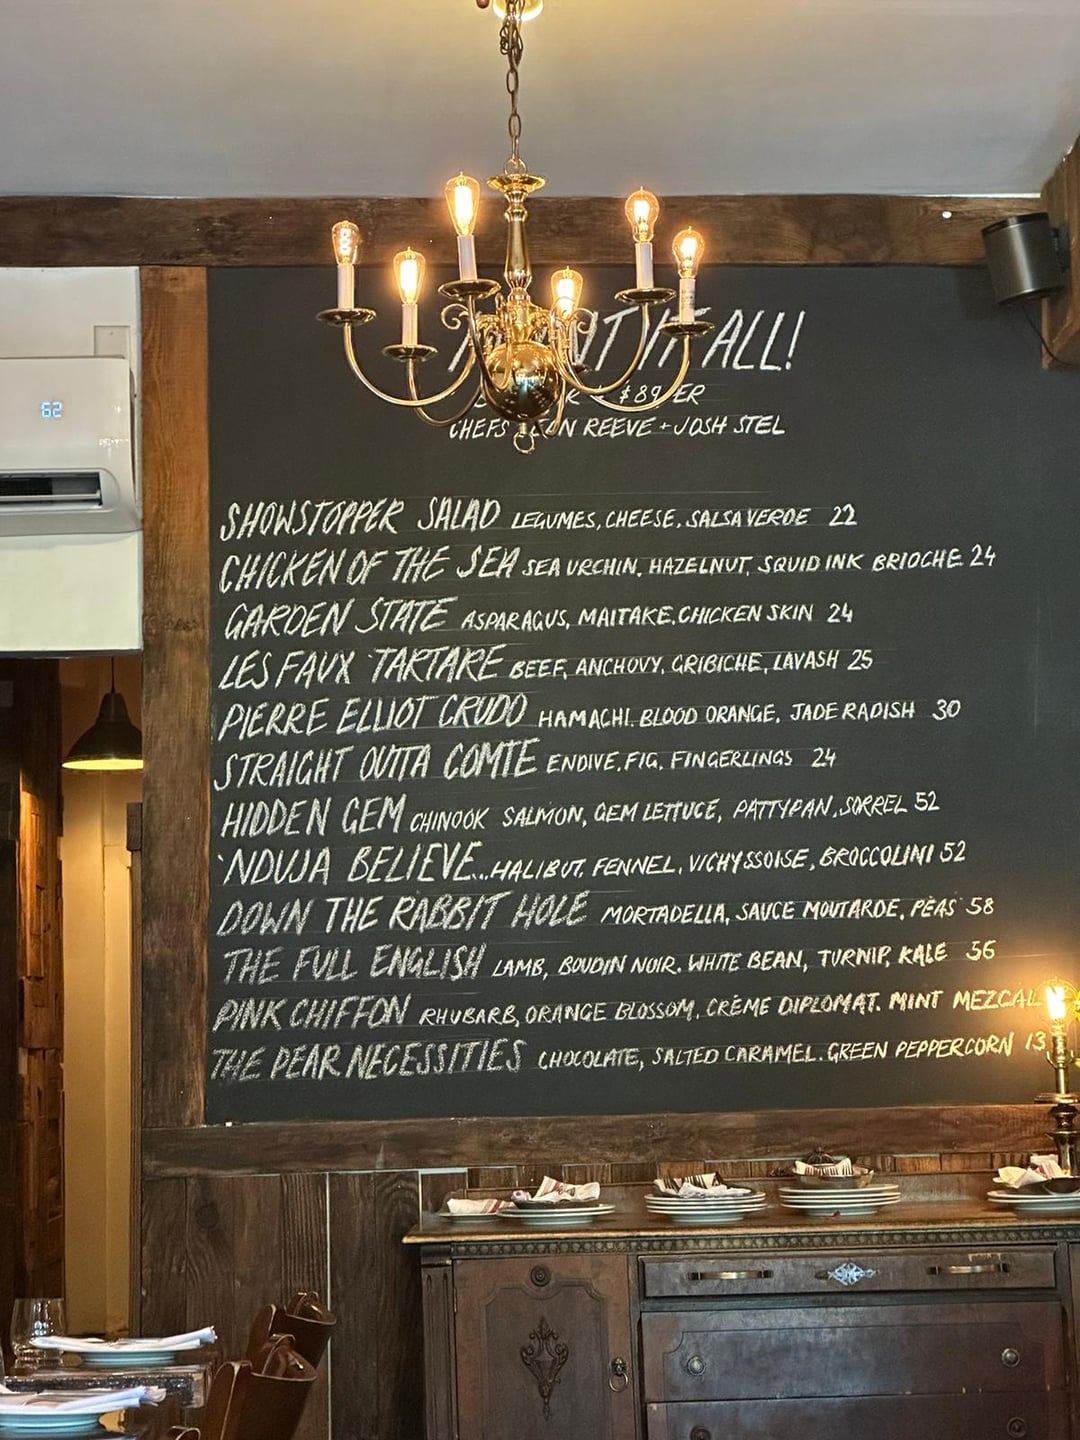 62
IT ALL!
$89
CHEFS REEVE + JOSH STEL
SHOWSTOPPER SALAD LEGUMES, CHEESE, SALSA VERDE 22
CHICKEN OF THE SEA SEA URCHIN, HAZELNUT, SQUID INK BRIOCHE 24
GARDEN STATE ASPARAGUS, MAITAKE, CHICKEN SKIN 24
LES FAUX TARTARE BEEF, ANCHOVY, GRIBICHE, LAVASH 25
PIERRE ELLIOT CRUDO HAMACHI, BLOOD ORANGE, JADE RADISH 30
STRAIGHT OUTTA COMTE ENDIVE, FIG, FINGERLINGS 24
HIDDEN GEM CHINOOK SALMON, GEM LETTUCE, PATTYPAN, SORREL 52
'NDUJA BELIEVE... HALIBUT, FENNEL, VICHYSSOISE, BROCCOLINI 52
DOWN THE RABBIT HOLE MORTADELLA, SAUCE MOUTARDE, PEAS 58
THE FULL ENGLISH LAMB, BOUDIN NOIR, WHITE BEAN, TURNIP, KALE 56
PINK CHIFFON RHUBARB, ORANGE BLOSSOM, CRÈME DIPLOMAT, MINT MEZCAL
THE PEAR NECESSITIES CHOCOLATE, SALTED CARAMEL, GREEN PEPPERCORN 13